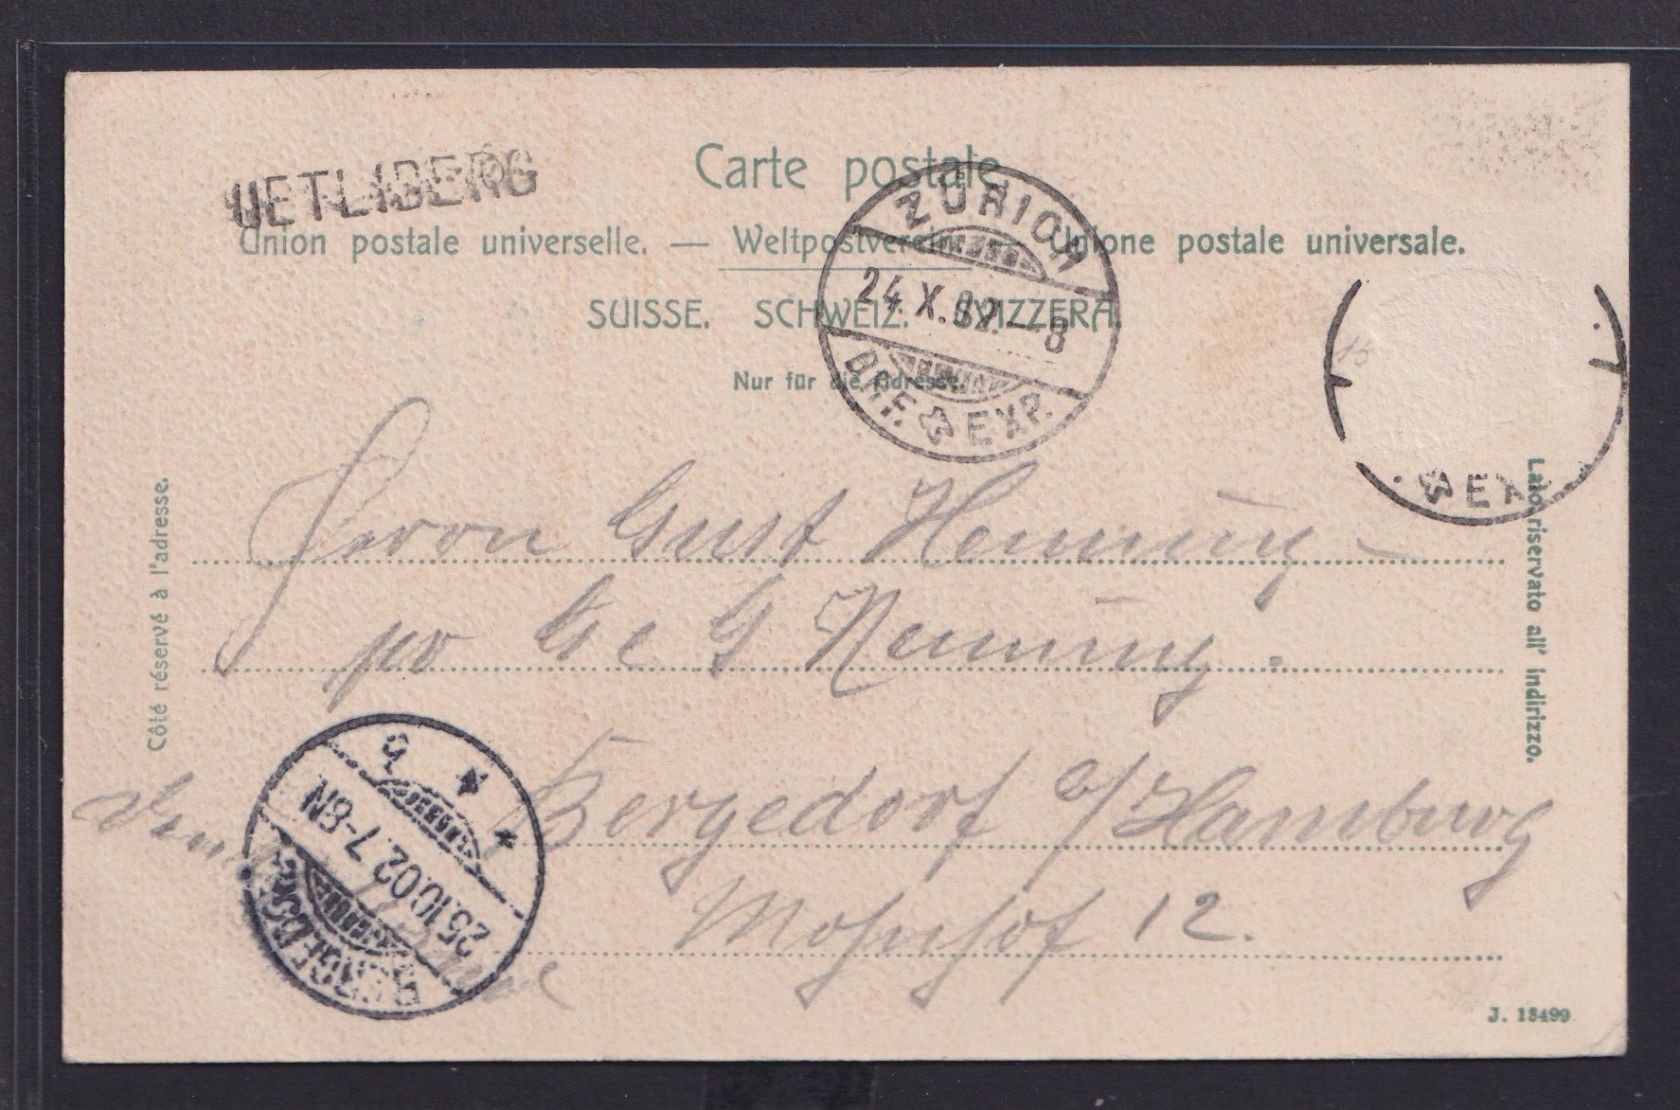 UETLIBERG
Carte postale.
Union postale universelle. — Weltpostverein. Unione postale universale.
SUISSE. SCHWEIZ. SVIZZERA.
Nur für die Adresse.
ZÜRICH
24.X.02.–8
BRF. EXP.
EXP
15
Côté réservé à l'adresse.
Lato riservato all' indirizzo.
Herrn Gust Henning
pr G Henning.
Bergedorf b/Hamburg
Mohnhof 12.
BERGEDORF
25.10.02.7-8N
* * b
J. 13499